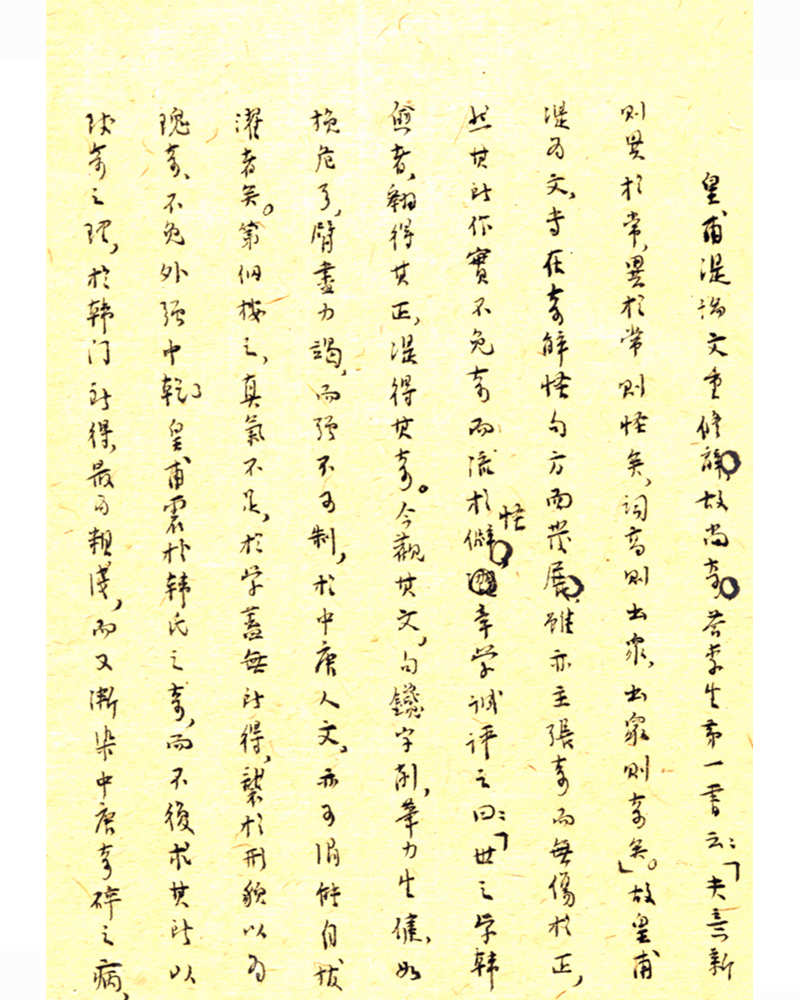 皇甫湜論文重修辭，故尚奇。答李生第一書云：「夫意新
則異於常，異於常則怪矣，詞高則出眾，出眾則奇矣。」故皇甫
湜为文，专在奇辭怪句方面發展。雖亦主張奇而無傷於正，
然其所作實不免奇而流於僻怪。章学诚評之曰：「世之学韩
愈者，翱得其正，湜得其奇。今觀其文，句鑱字削，筆力生健，如
挽危弓，臂盡力竭，而强不可制，於中唐人文，亦可謂能自拔
濯者矣。第細按之，真氣不足，於学蓋無所得，襲於形貌以为
瑰奇，不免外强中乾」皇甫震於韩氏之奇，而不復求其所以
致奇之理，於韩门所得，最为粗淺，而又漸染中唐奇碎之病，